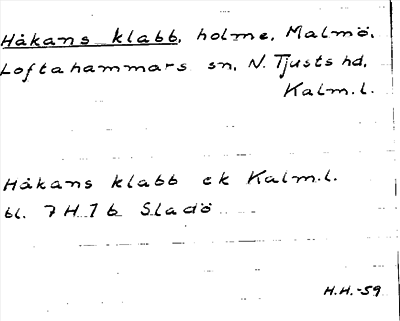 Håkans klabb, holme, Malmö,
Loftahammars sn, N. Tjusts hd,
Kalm.l.
Håkans klabb ek Kalm.l.
bl. 7 H 7 b Sladö
H.H.-59